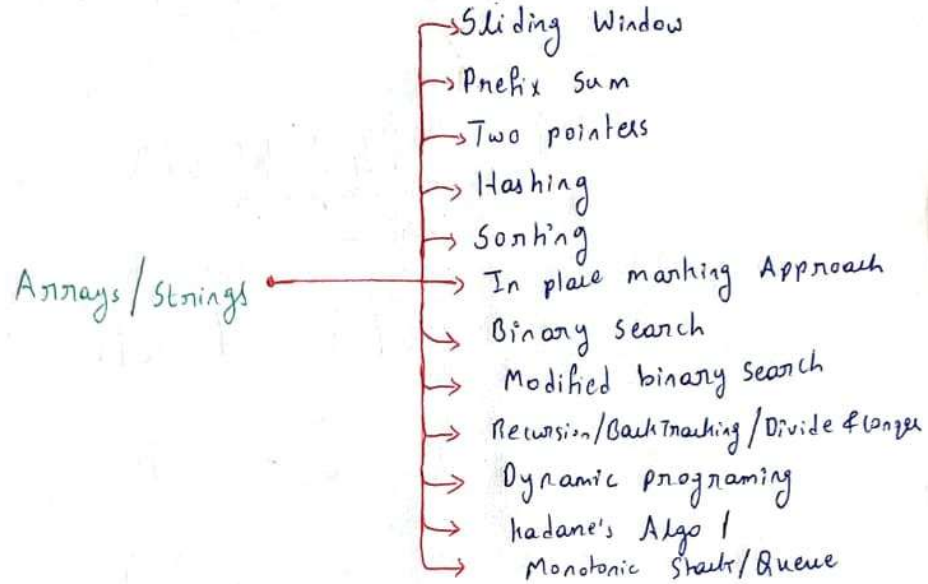 Sliding Window
Prefix Sum
Two pointers
Hashing
Sorting
In place marking Approach
Arrays / Strings
Binary Search
Modified binary Search
Recursion/BackTracking/Divide & Conqer
Dynamic programing
Kadane's Algo /
Monotonic Stack/Queue